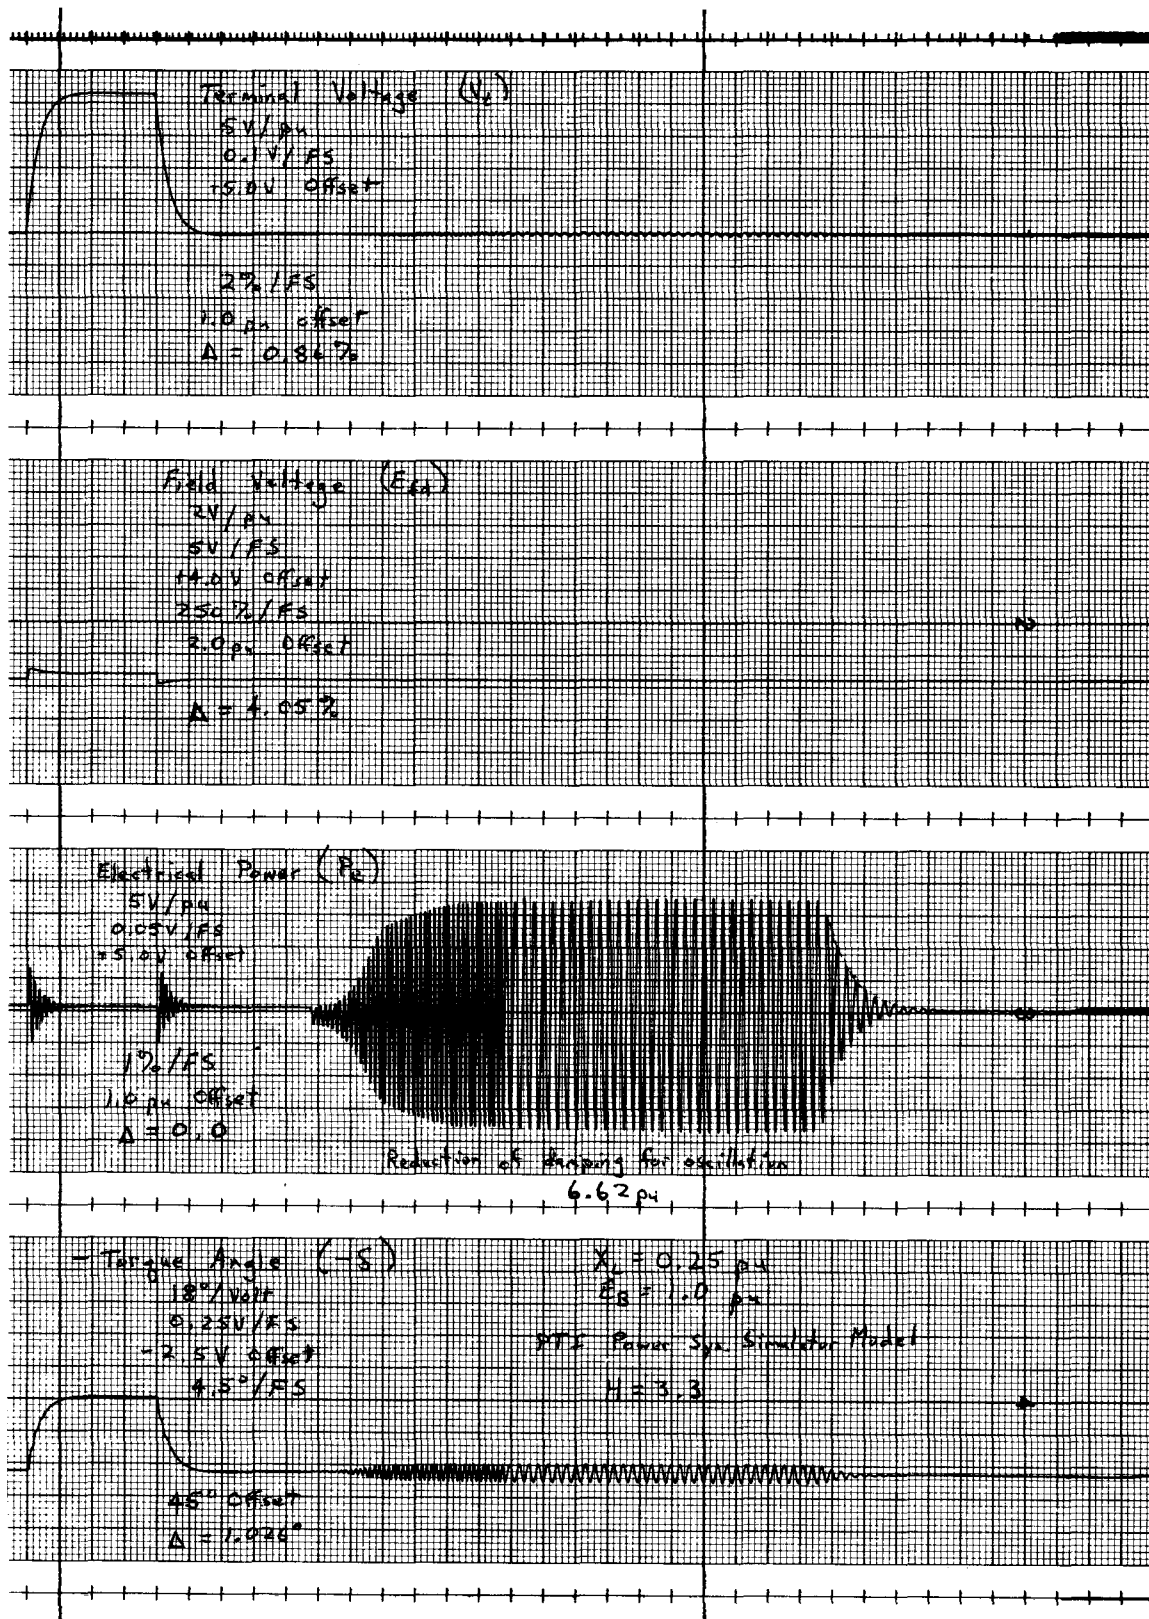 Terminal Voltage (Vt)
5V/pu
0.1V/FS
+5.0V Offset
2%/FS
1.0 pu offset
Δ = 0.86%
Field Voltage (Efd)
2V/pu
5V/FS
+4.0V Offset
250%/FS
2.0pu Offset
2
Δ = 4.05%
Electrical Power (Pe)
5V/pu
0.05V/FS
+5.0V Offset
1%/FS
1.0 pu Offset
Δ = 0.0
Reduction of damping for oscillation
6.62pu
- Torque Angle (-δ)
18°/Volt
0.25V/FS
-2.5V Offset
4.5°/FS
45° Offset
Δ = 1.026°
XL = 0.25 pu
EB = 1.0 pu
PTI Power Sys. Simulator Model
H = 3.3